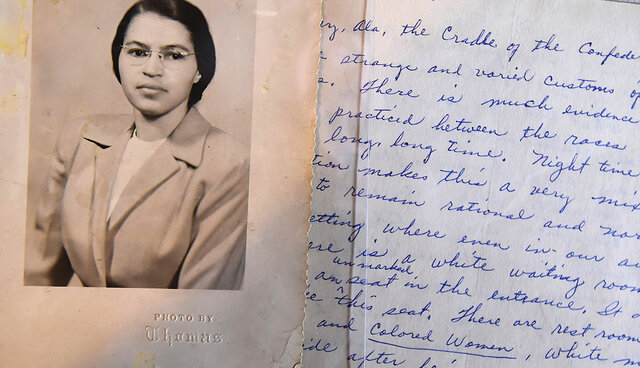 PHOTO BY
Thomas
ry, Ala, the Cradle of the Confede
strange and varied customs of
e. There is much evidence
practiced between the races
long, long time. Night time
tion makes this a very mix
to remain rational and nor
etting where even in our a
ere is a white waiting room
unmarked,
an seat in the entrance. It
ce this seat. There are rest room
and Colored Women, white m
ide after